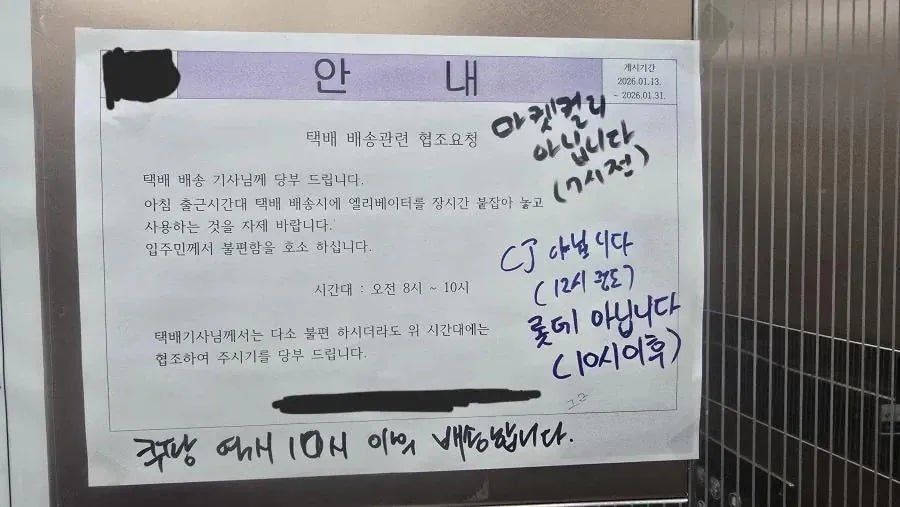 안 내
게시기간
2026.01.13.
~ 2026.01.31.
택배 배송관련 협조요청
택배 배송 기사님께 당부 드립니다.
아침 출근시간대 택배 배송시에 엘리베이터를 장시간 붙잡아 놓고
사용하는 것을 자제 바랍니다.
입주민께서 불편함을 호소 하십니다.
시간대 : 오전 8시 ~ 10시
택배기사님께서는 다소 불편 하시더라도 위 시간대에는
협조하여 주시기를 당부 드립니다.
마켓컬리
아닙니다
(7시전)
CJ 아닙니다
(12시 완도)
롯데 아닙니다
(10시이후)
쿠팡 역시 10시 이억 배송합니다.